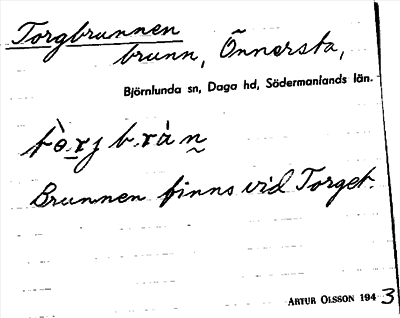 Torgbrunnen
brunn, Önnersta,
Björnlunda sn, Daga hd, Södermanlands län.
Brunnen finns vid Torget.
ARTUR OLSSON 1943